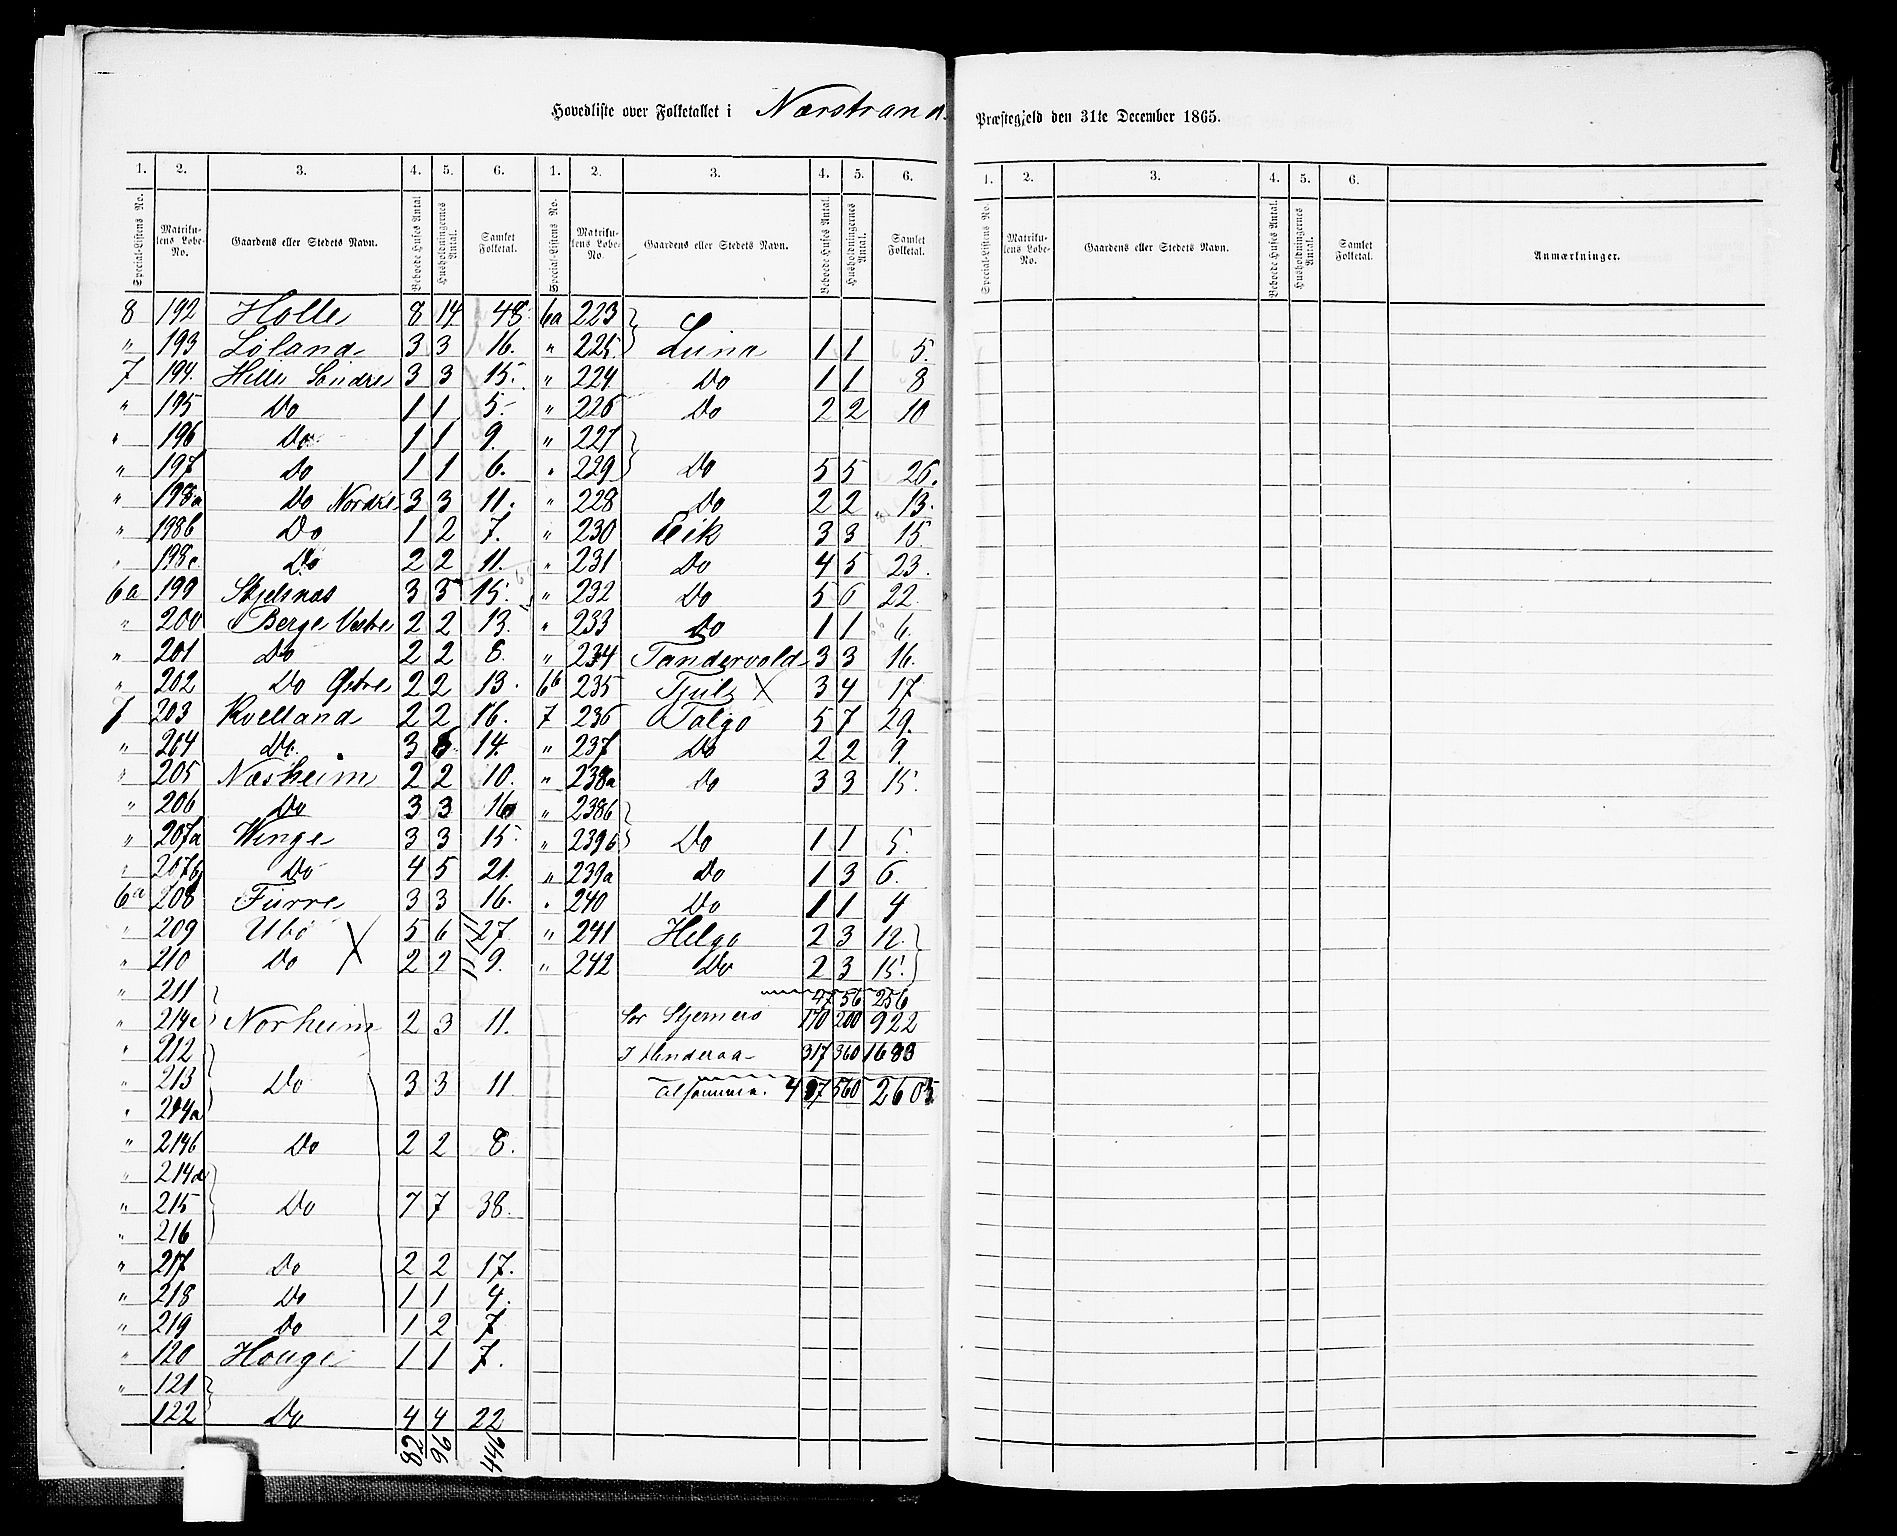 Hovedliste over Folketallet i Nærstrand Præstegjeld den 31te December 1865.
1. 2. 3. 4. 5. 6.
Special-Listens No. Matrikulens Løbe-No. Gaardens eller Stedets Navn. Beboede Huses Antal. Husholdningernes Antal. Samlet Folketal.
8 192 Holle 8 14 48.
" 193 Løland 3 3 16.
7 194. Helle Søndre 3 3 15.
" 195 Do 1 1 5.
" 196 Do 1 1 9.
" 197 Do 1 1 6.
" 198a Do Nordre 3 3 11.
" 198b Do 1 2 7.
" 198c Do 2 2 11.
6a 199 Skjelsnæs 3 3 15.
" 200 Berge Vestre 2 2 13.
" 201 Do 2 2 8.
" 202 Do Østre 2 2 13.
7 203 Kvelland 2 2 16.
" 204 Do. 3 14.
" 205 Næsheim 2 2 10.
" 206 Do 3 3 16
" 207a Winge 3 3 15.
" 207b Do 4 5 21.
6a 208 Furre 3 3 16.
" 209 Ubø 5 6 27.
" 210 Do 2 2 9.
" 211
" 214c Norheim 2 3 11.
" 212
" 213 Do 3 3 11
" 214a
" 214b Do 2 2 8.
" 214d
" 215 Do 7 7 38.
" 216
" 217 Do 2 2 17.
" 218 Do 1 1 4.
" 219 Do 1 2 7
" 120 Houge 1 1 7.
" 121
122 Do 4 4 22
82 96 446
1. 2. 3. 4. 5. 6.
Special-Listens No. Matrikulens Løbe-No. Gaardens eller Stedets Navn. Beboede Huses Antal. Husholdningernes Antal. Samlet Folketal.
6a 223
" 225. Luna 1 1 5.
" 224. Do 1 1 8
" 226 Do 2 2 10
" 227
" 229 Do 5 5 26.
" 228 Do 2 2 13.
" 230 Eik 3 3 15
" 231 Do 4 5 23.
" 232 Do 5 6 22.
" 233 Do 1 1 6.
" 234 Tandervold 3 3 16.
6b 235 X 3 4 17
7 236 Talgø 5 7 29.
" 237 Do 2 2 9.
" 238a Do 3 3 15.
" 238b
" 239b Do 1 1 5.
" 239a Do 1 3 6.
" 240 Do 1 1 4
" 241 Helgø 2 3 12.
" 242 Do 2 3 15.
47 56 256
for Sjernerø 170 200 922
317 360 1683
Al sammen. 487 560 2605.
1. 2. 3. 4. 5. 6.
Special-Listens No. Matrikulens Løbe-No. Gaardens eller Stedets Navn. Beboede Huses Antal. Husholdningernes Antal. Samlet Folketal. Anmærkninger.